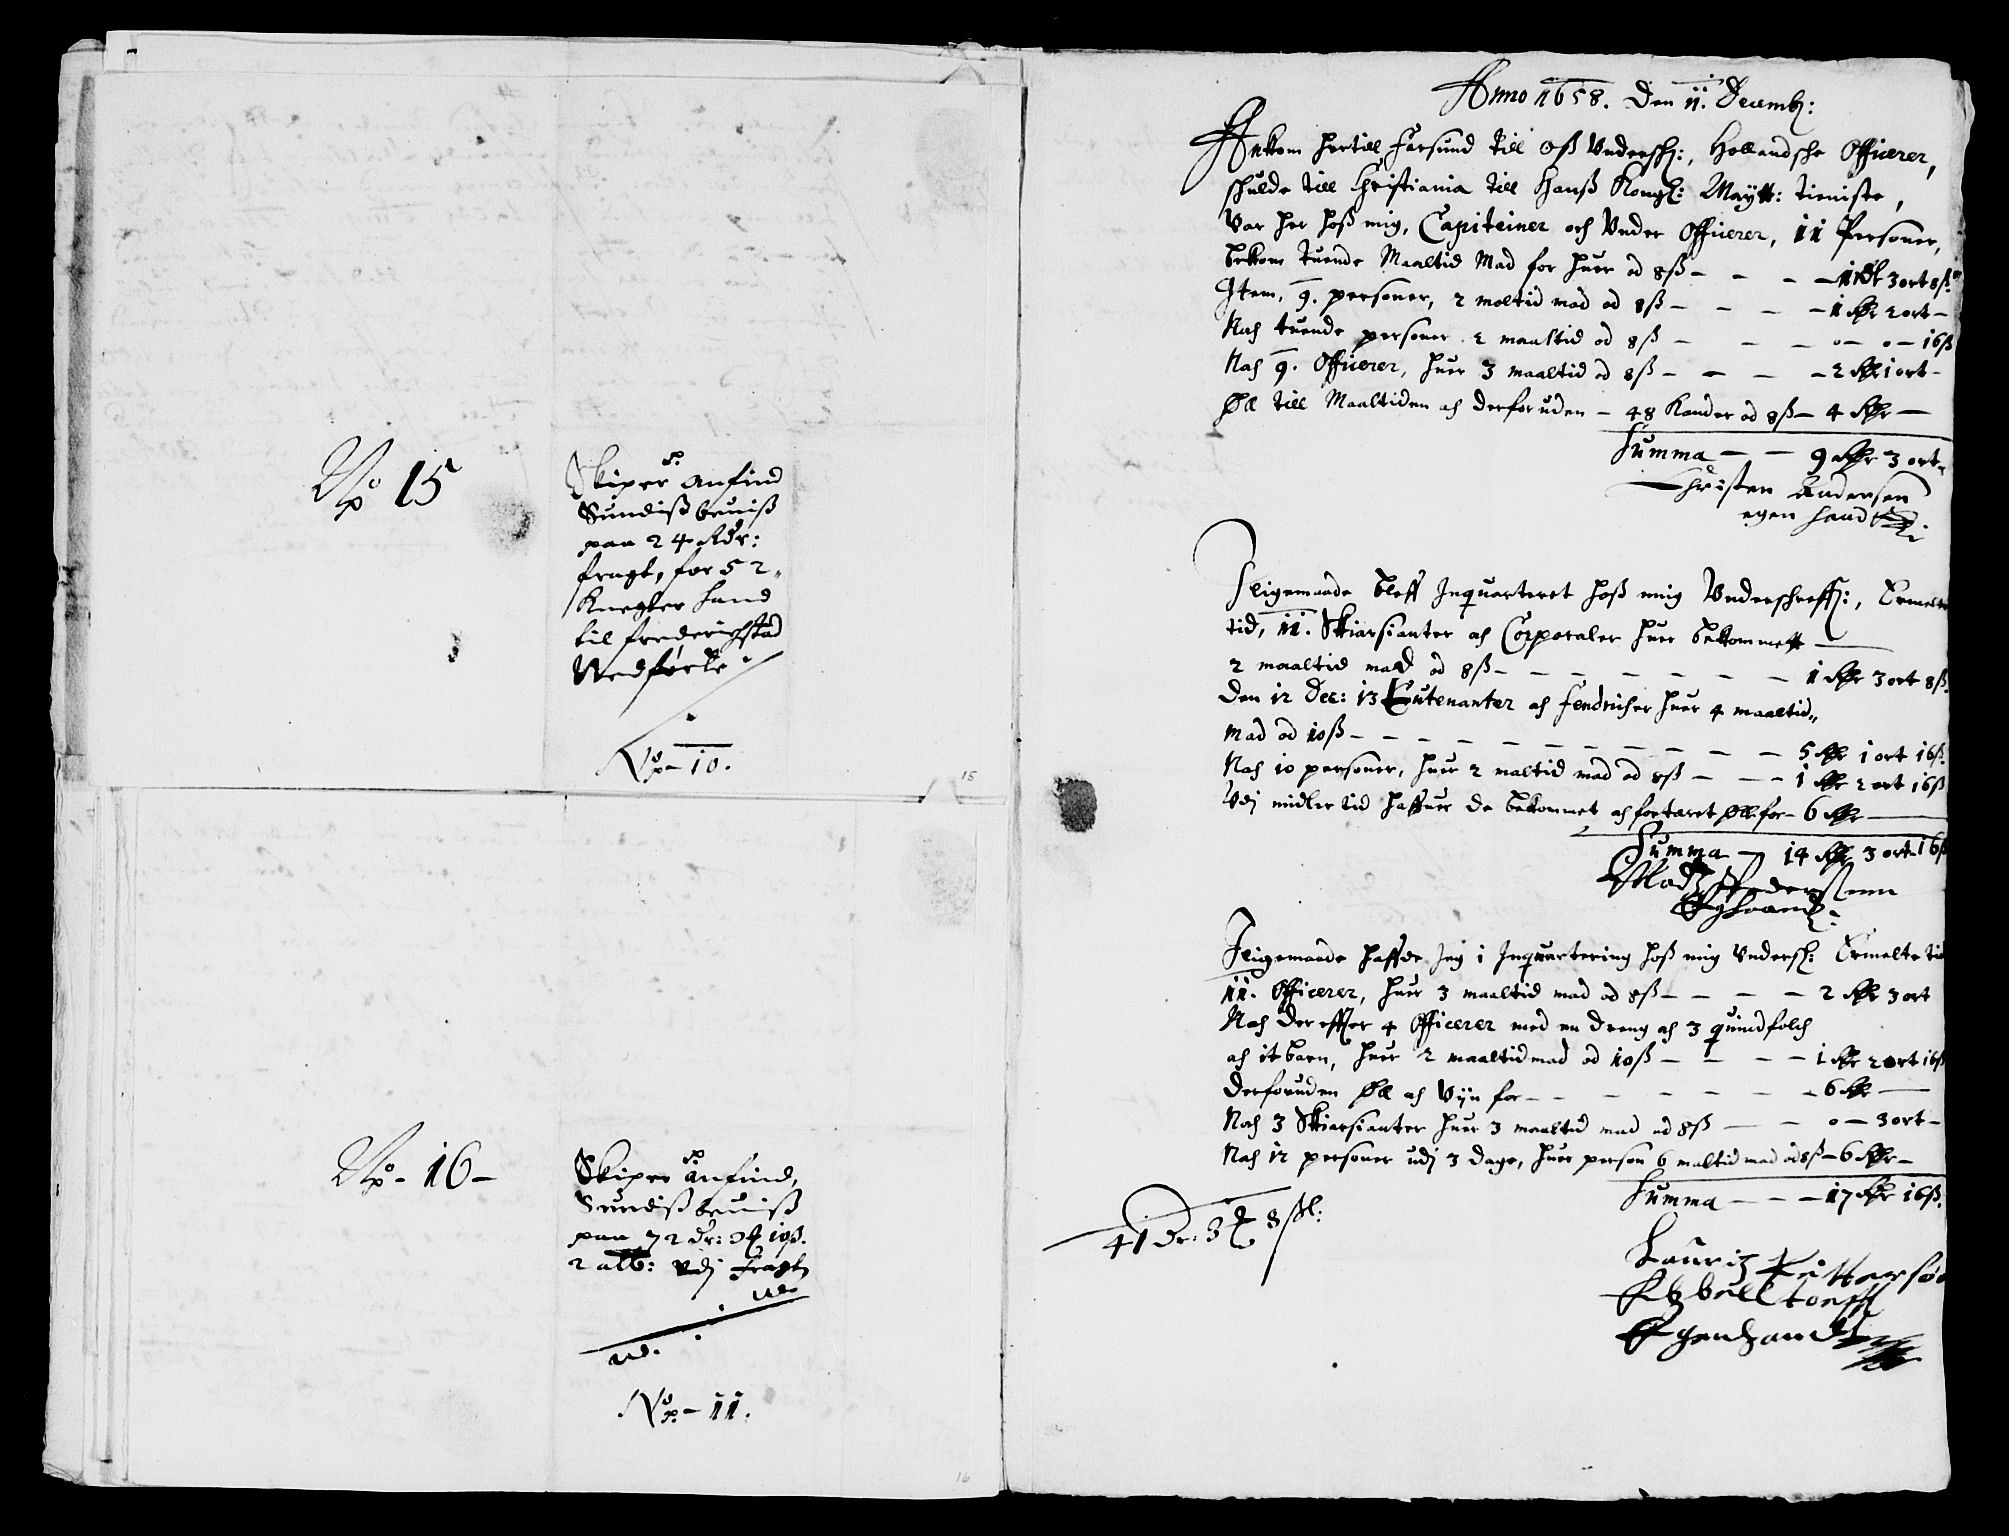 No 15
Skiper Anfind
Sundiß beuiß
paa 24 Rdr:
fragt, for 52
Knegter hand
til frederichstad
Nedførte
No 10.
15
No 16
Skiper Anfind,
Sundiß beuiß
paa 72 dr:
2 alb: Vdj fragt
No 11.
16
Anno 1658. Den 11. Decemb:
Ankom hertill Farsund till oß Vndersch:, Hollandsche Officerer,
schulde till Christiania till Hanß Kongl: Maytt: tieniste,
Var her hoß mig, Capiteiner och Vnder Officerer, 11 Personer,
bekom tuende Maaltid Mad for huer ad 8ß - - - 1 Rdl 3 ort 8ß
Item, 9. personer, 2 moltid mad ad 8ß - - - 1 Rdr 2 ort -
Noch tuende personer 2 maaltid ad 8ß - - - 0 - 0 - 16ß
Noch 9. Officerer, huer 3 maaltid ad 8ß - - - 2 Rdr 1 ort -
Øll till Maaltiden och derforuden - 48 Kander ad 8ß - 4 Rdr -
Summa - - 9 Rdr 3 ort -
Christen Andersen
egen haand
Sligemaade bleff Inquarteret hoß mig Vnderschreff:, Ermelte
tid, 11. Skiarsianter och Corporaler huer bekommett
2 maaltid mad ad 8ß - - - 1 Rdr 3 ort 8ß
Den 12 Dec: 13 Leutenanter och fendricher huer 4 maaltid
Mad ad 10ß - - - 5 Rdr 1 ort 16ß
Noch 10 personer, huer 2 maltid mad ad 8ß - - - 1 Rdr 2 ort 16ß
Vdj midler tid haffuer de bekommet och fortæret Øll for - 6 Rdr -
Summa - 14 Rdr 3 ort 16ß
Madz Pedersenn
Eghaand:
Sligemaade haffde Jeg i Inquartering hoß mig Vndersch: Ermelte tid
11. Officerer, huer 3 maaltid mad ad 8ß - - - 2 Rdr 3 ort
Noch der effter 4 Officerer med en dreng och 3 quindfolch
och it barn, huer 2 maaltid mad ad 10ß - - - 1 Rdr 2 ort 16ß
Derforuden Øll och Vijn for - - - 6 Rdr -
Noch 3 Skiarsianter huer 3 maaltid mad ad 8ß - - 0 - 3 ort -
Noch 12 personer udj 3 dage, huer person 6 maltid mad ad 8ß - 6 Rdr -
Summa - - - 17 Rdr 16ß
41 Dr: 3 8 ßl:
Lauritz
Egenhandt